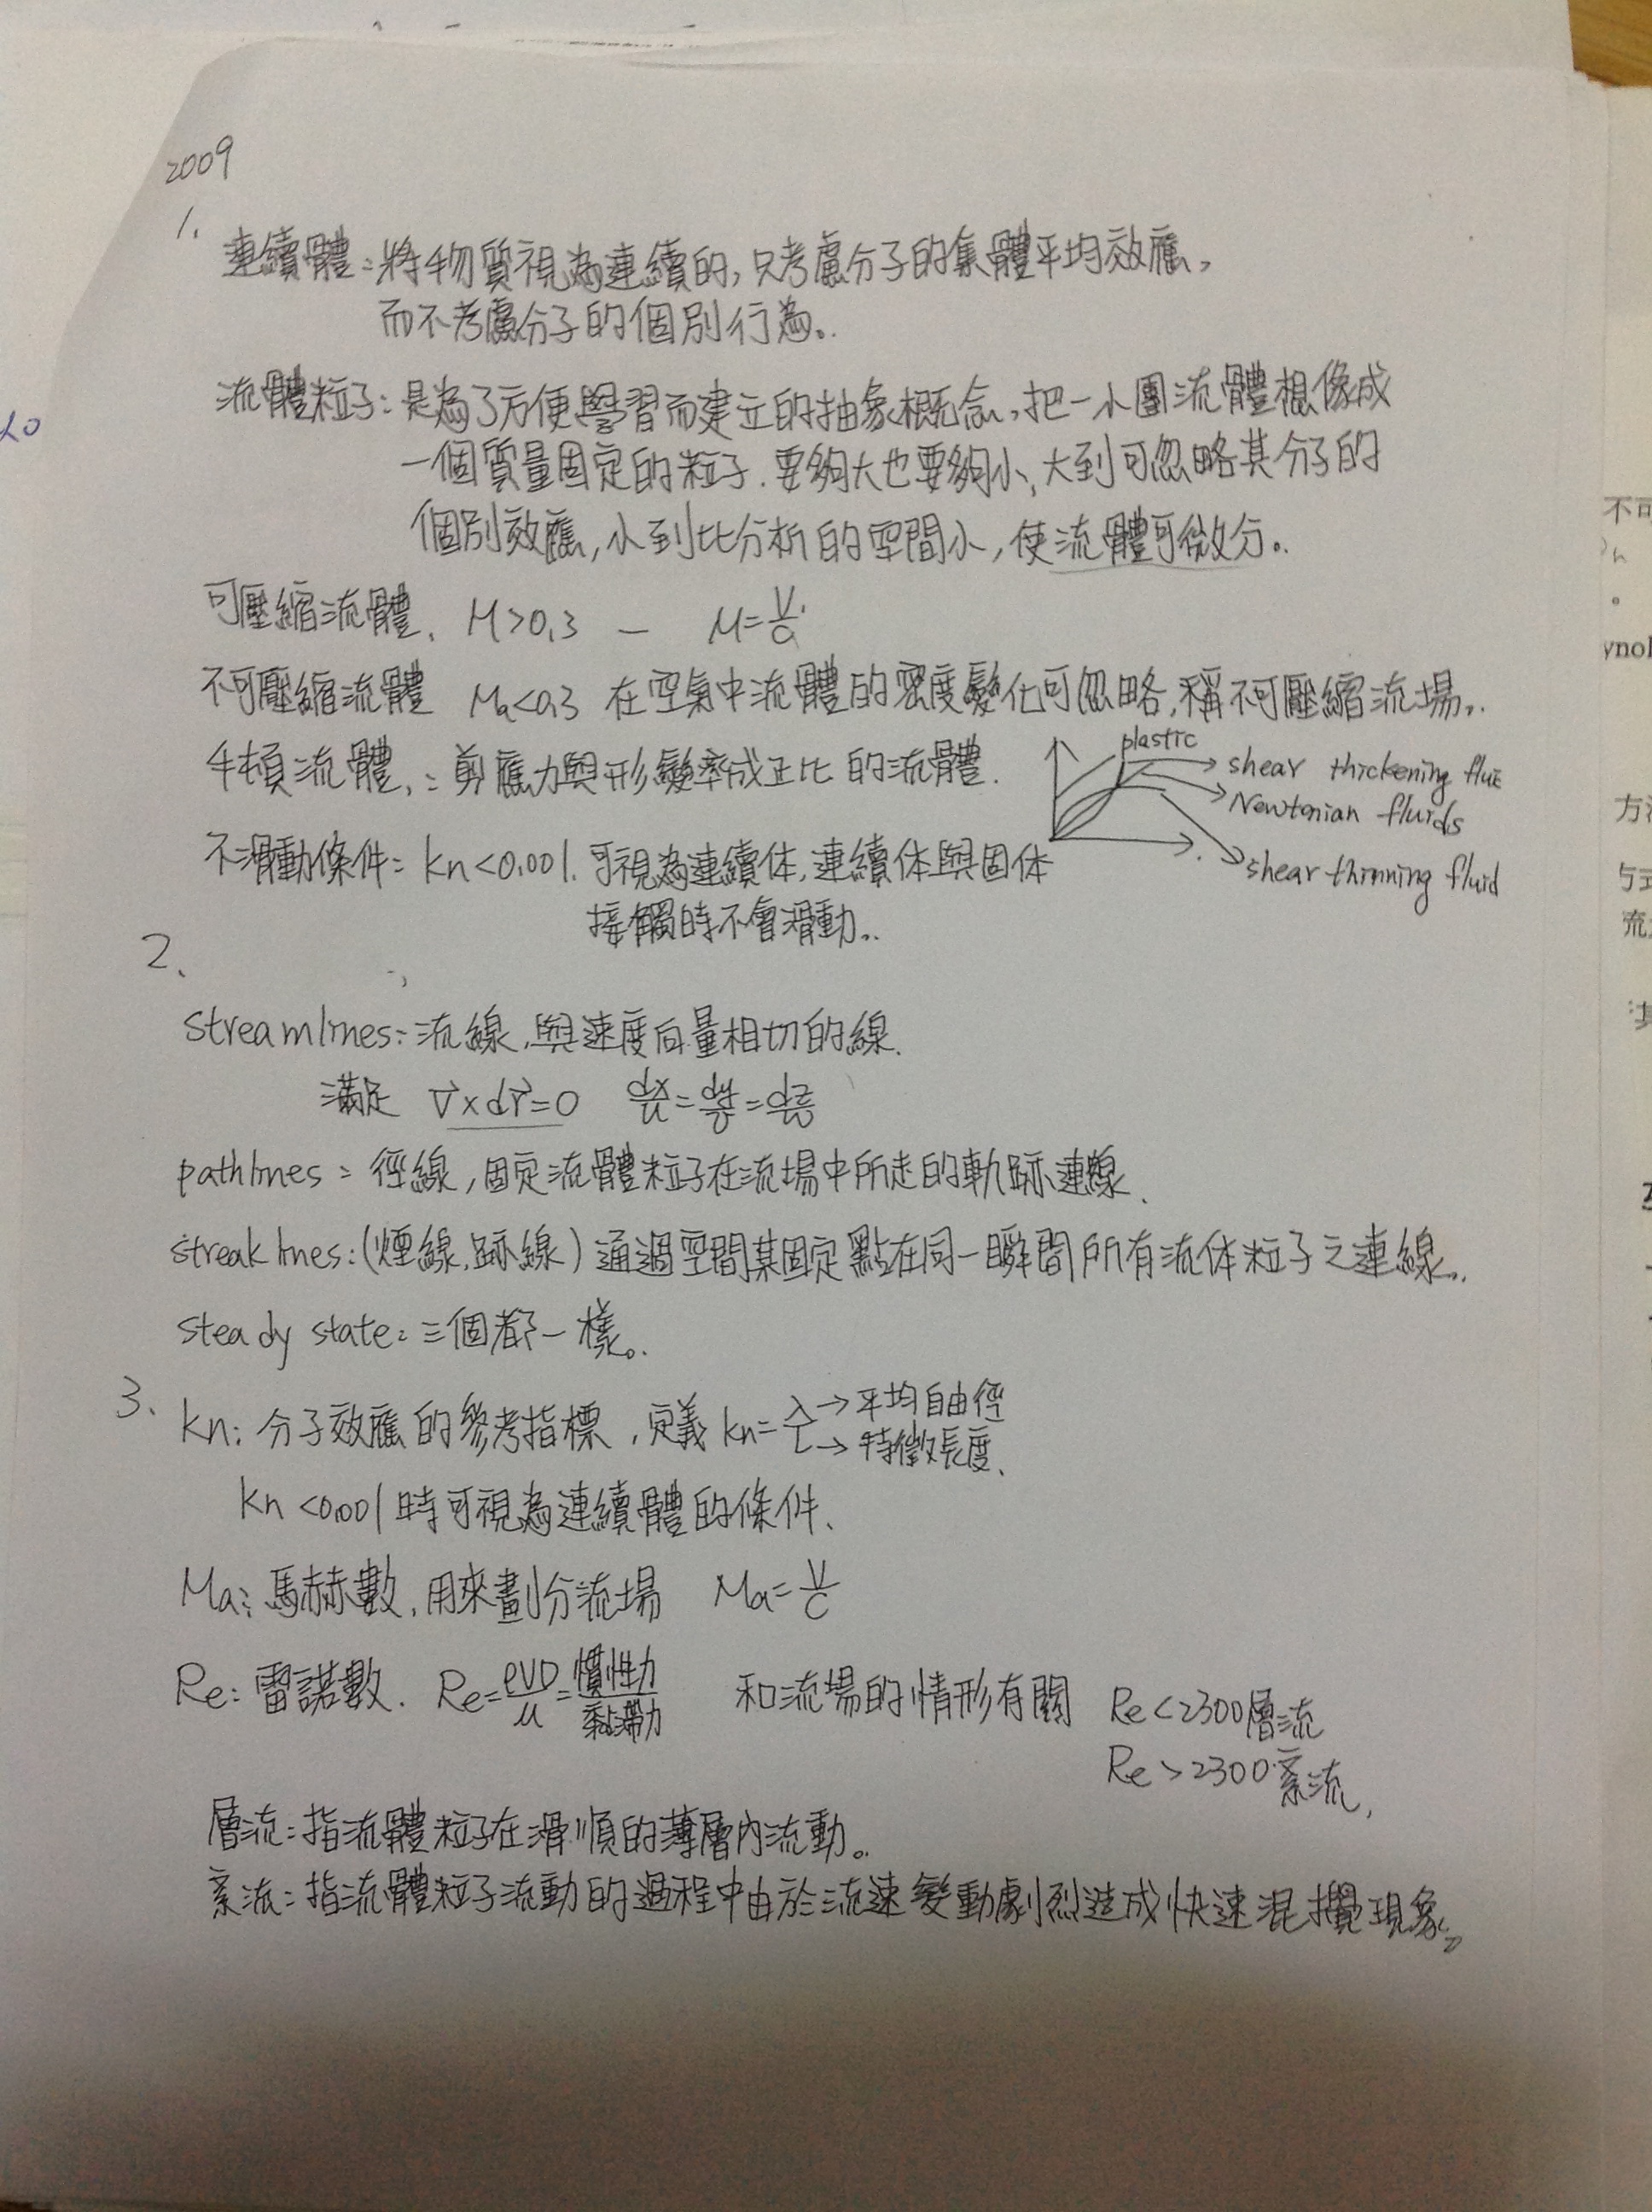 2009
1.
連續體:將物質視為連續的,只考慮分子的集體平均效應,
而不考慮分子的個別行為。
流體粒子:是為了方便學習而建立的抽象概念,把一小團流體想像成
一個質量固定的粒子.要夠大也要夠小,大到可忽略其分子的
個別效應,小到比分析的空間小,使流體可微分。
可壓縮流體、M>0.3 — M=V/a
不可壓縮流體 Ma<0.3 在空氣中流體的密度變化可忽略,稱不可壓縮流場。
牛頓流體:剪應力與形變率成正比的流體.
plastic
shear thickening flui
Newtonian fluids
shear thinning fluid
不滑動條件: kn<0.001. 可視為連續体,連續体與固体
接觸時不會滑動。
2、
streamlines:流線,與速度向量相切的線.
滿足 V×dr=0 dx/u=dy/v=dz/w
pathlines:徑線,固定流體粒子在流場中所走的軌跡連線、
streak lines:(煙線,跡線) 通過空間某固定點在同一瞬間所有流体粒子之連線。
steady state:三個都一樣。
3、
kn:分子效應的參考指標,定義 kn=λ/L λ→平均自由徑
L→特徵長度、
kn<0.001時可視為連續體的條件、
Ma:馬赫數,用來劃分流場 Ma=V/C
Re:雷諾數. Re=ρVD/μ=慣性力/黏滯力 和流場的情形有關 Re<2300層流
Re>2300紊流,
層流:指流體粒子在滑順的薄層內流動。
紊流:指流體粒子流動的過程中由於流速變動劇烈造成快速混攪現象。
不可
ynol
方
与式
流
其